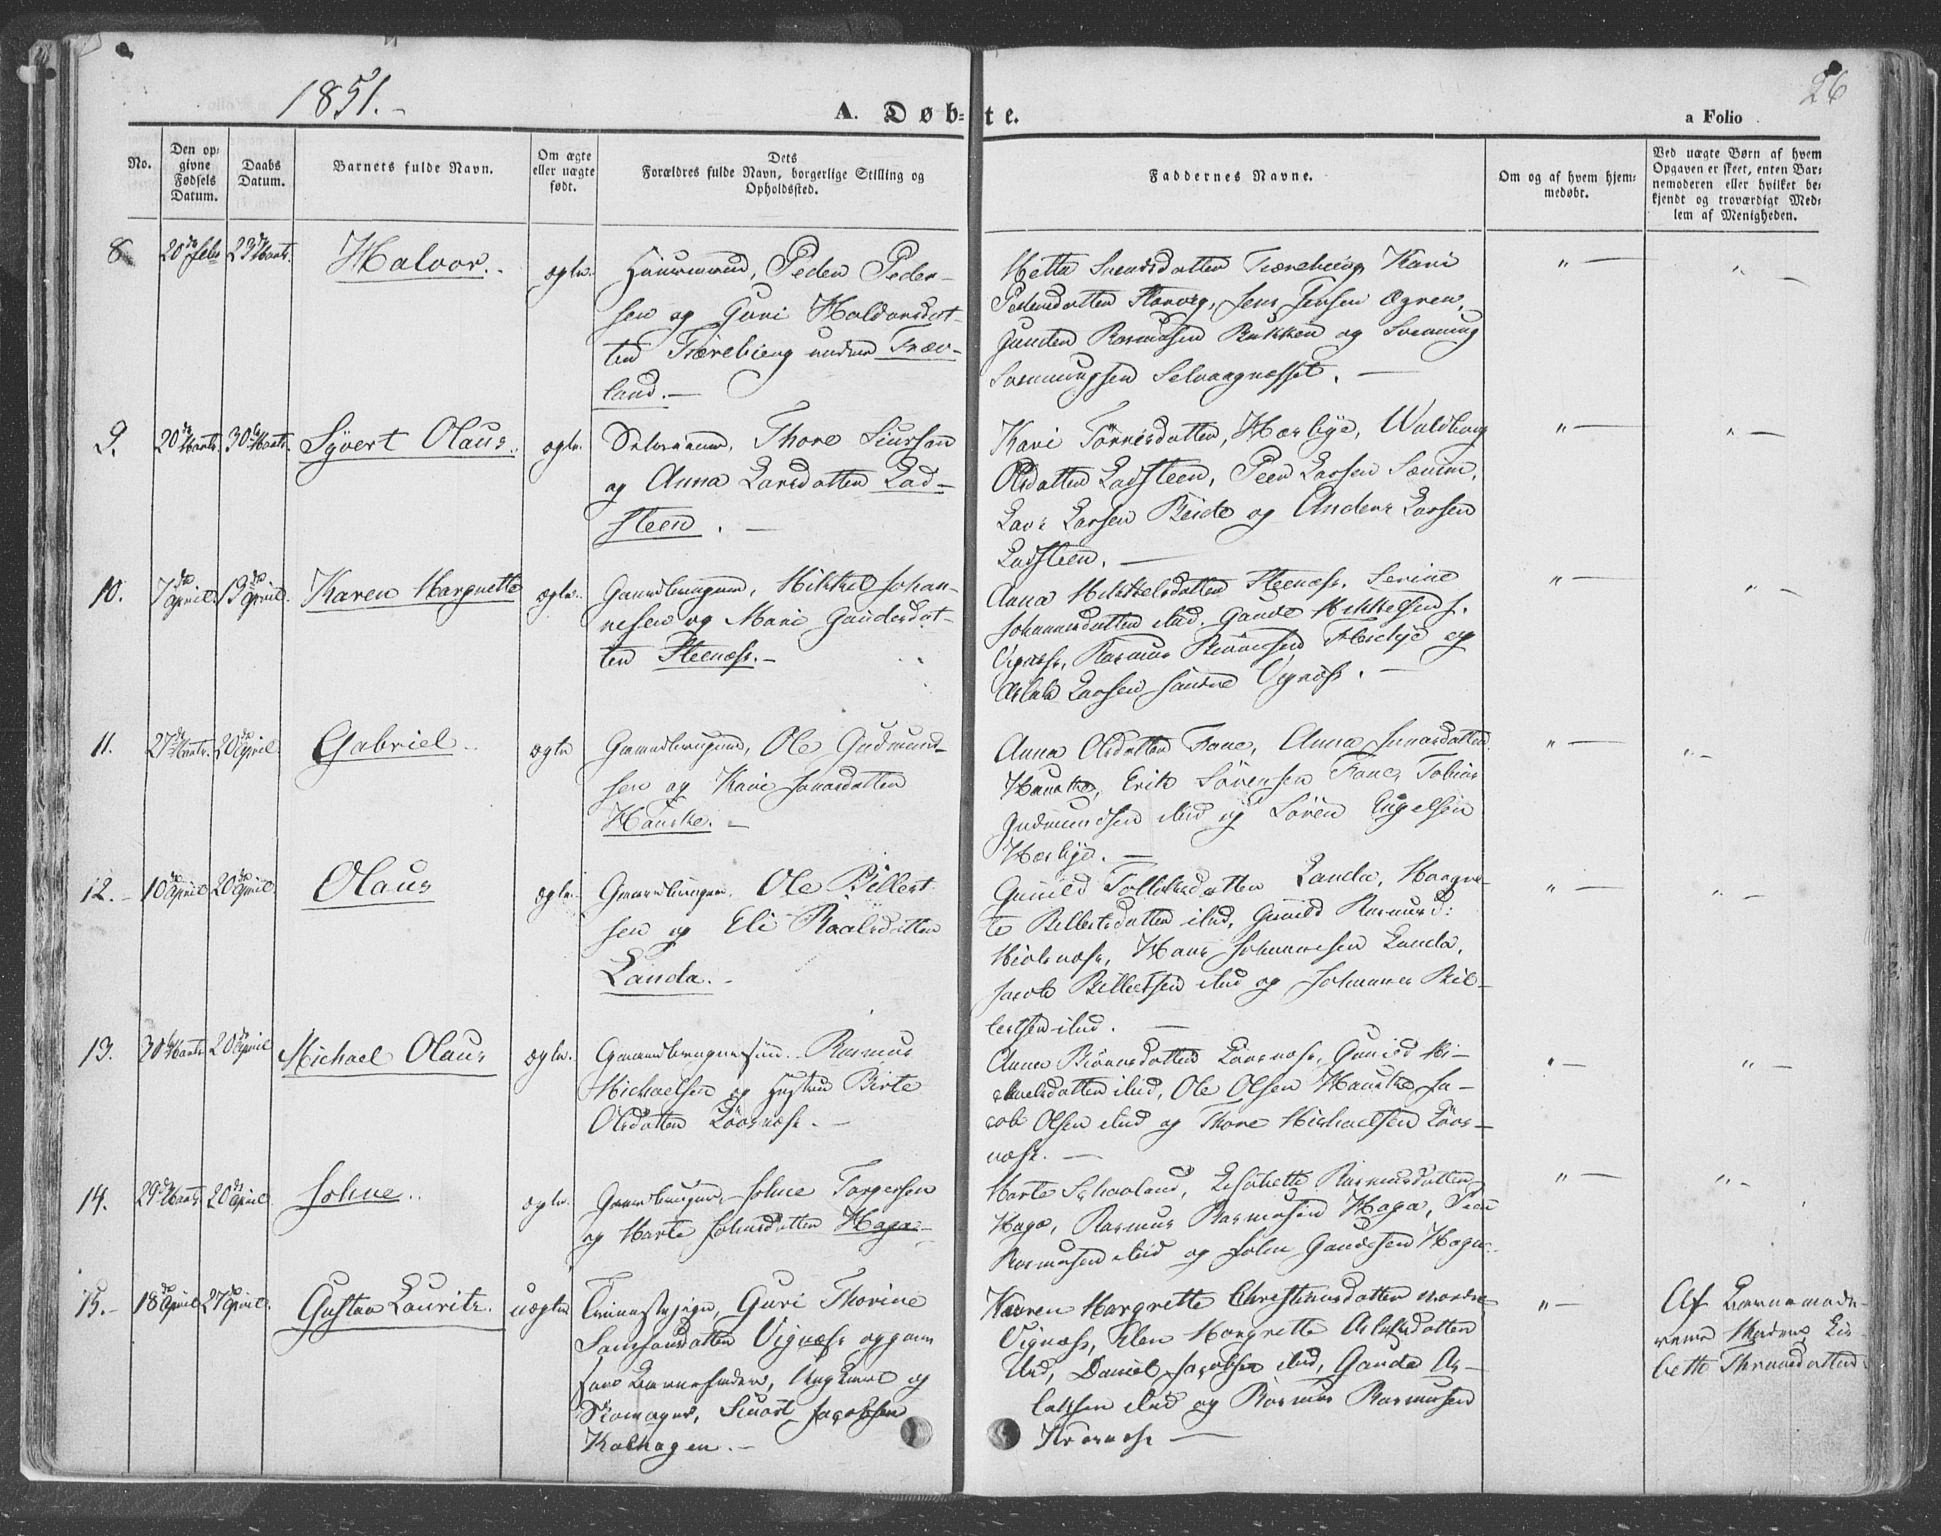 1851.-
26
A. Døb-te.
a Folio
No.
Den op-
givne
Fødsels
Datum.
Daabs
Datum.
Barnets fulde Navn.
Om ægte
eller uægte
født.
Dets
Forældres fulde Navn, borgerlige Stilling og
Opholdssted.
Faddernes Navne.
Om og af hvem hjem-
medøbt.
Ved uægte Børn af hvem
Opgaven er skeet, enten Bar-
nemoderen eller hvilket be-
kjendt og troværdigt Med-
lem af Menigheden.
8
20de Febr
23de Marts.
Halvor.
ægte.
Huusmand, Peder Peder-
sen og Guri Haldorsdat-
ter under
land.-
Metta Svendsdatter Kari
Pedersdatter Jens Jensen
Gunder Rasmusen Bakken og Svenning
Svenningsen
" —
" —
9.
20de Marts.
30de Marts.
Syvert Olaus.
ægte.
Thore Siursen
og Anna Larsdatter Lad-
steen. -
Kari Tørresdatter, Hæskje, Waldborg
Olsdatter Ladsteen, Peer Larsen
Lars Larsen og Anders Larsen
Ladsteen. —
" —
" —
10.
7de April.
19de April.
Karen Margrette
ægte.
Gaardbruger, Mikkel Johan-
nesen og Mari Gundersdat-
ter Steenæss.-
Anna Mikkelsdatter Steenæss. Serine
Johannesdatter ibid. Gunde Mikkelsen s.
Vignæss, Rasmus og
Aslak Larsen søndre Vignæss. -
" —
" -
11.
27de Marts.
20de April.
Gabriel.
ægte
Gaardbruger, Ole Gudmund-
sen og Kari Jonasdatter
Hauske. -
Anna Olsdatter Anna Jonasdatter
Hauske, Erik Sørensen Tobias
Gudmundsen ibid og Søren Engelsen
Hæskje. —
" —
" -
12.-
10de April
20de April.
Olaus
ægte.
Gaardbruger. Ole Billert-
sen og Eli
Landa. -
Gunild Tollaksdatter Landa, Maagre-
te Billertsdatter ibid, Gunild Rasmusd:
Hans Johannesen Landa,
Jacob Billertsen ibid og Johannes Bil-
lertsen ibid. —
" —
" -
13.
30de Marts
20de April
Michael Olaus
ægte.
Rasmus
Michaelsen og Hustru Birte
Olsdatter Løvsnæss. -
Anna Bjørnsdatter Løvsnæss, Gunild Mi-
chaelsdatter ibid, Ole Olsen Hauske Ja-
cob Olsen ibid og Thore Michaelsen Løvs-
næss. —
" -
" -
14.
29de Marts
20de April
Johne.
ægte.
Gaardbruger, Johne Torgersen
og Marte Johnsdatter Haga-
Marte Schaaland, Elisabette Rasmusdatter
Haga, Rasmus Rasmusen Haga, Peer
Rasmusen ibid og John Gundersen Haga.
" —
" -
15.-
18de April
27de April.
Gustav Lauritz.
uægte
Guri Thorine
Vignæss
Ungkarl og
Skomager, Sivert Jacobsen
Kalhagen. -
Karen Margrette Christiansdatter nordre
Vignæss, Elen Margrette Aslaksdatter
ibid, Daniel Jacobsen ibid, Gunda As-
laksen ibid og Rasmus Rasmusen
—
" —
Af Barnemode-
rens Moder, Lis-
bette